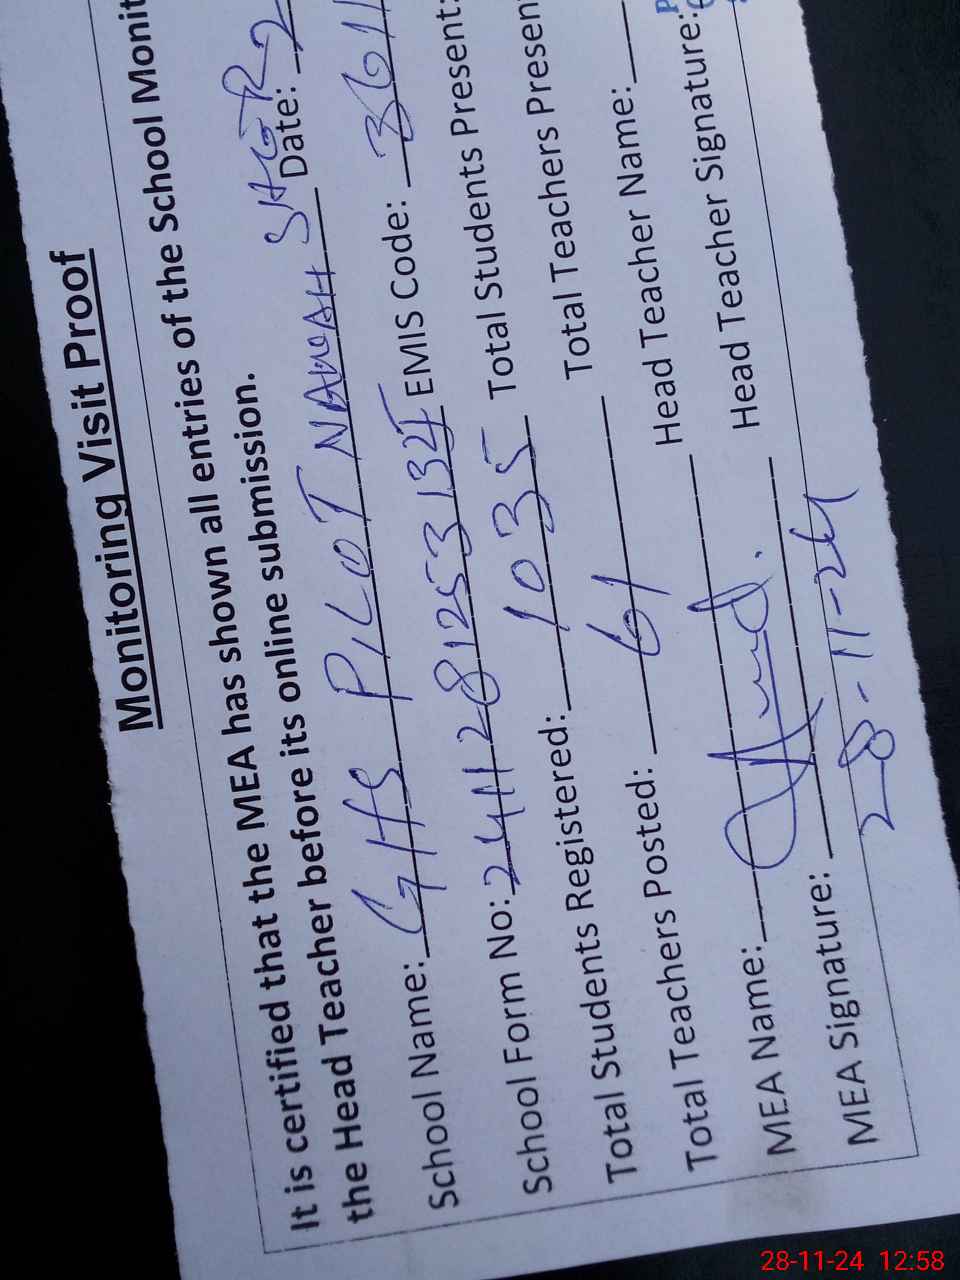 Monitoring Visit Proof
It is certified that the MEA has shown all entries of the School Monit
the Head Teacher before its online submission.
School Name: GHS PILOT NAWAH SHGR Date: 2
School Form No: 2411280125313 EMIS Code: 3611
Total Students Registered: 1035 Total Students Present:
Total Teachers Posted: 61 Total Teachers Presen
MEA Name: Head Teacher Name:
MEA Signature: Head Teacher Signature:
28-11-24
28-11-24 12:58